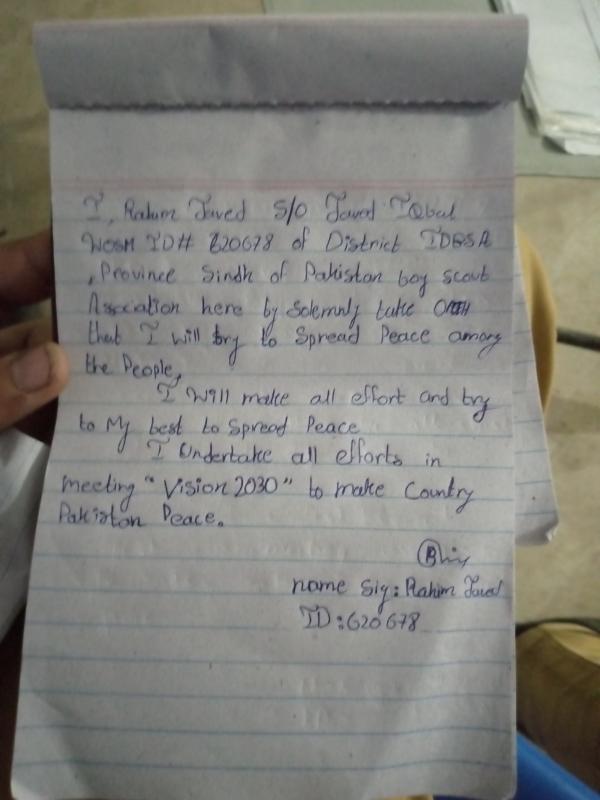 I, Rahim Javed S/O Javed IQbal
WOSM ID# 620678 of District IDBSA
, Province Sindh of Pakistan boy scout
Association here by Solemnly take OATH
that I will try to Spread Peace among
the People,
I Will make all effort and try
to My best to Spread Peace
I Undertake all efforts in
meeting "Vision 2030" to make Country
Pakistan Peace.
name Sig: Rahim Javed
ID: 620678